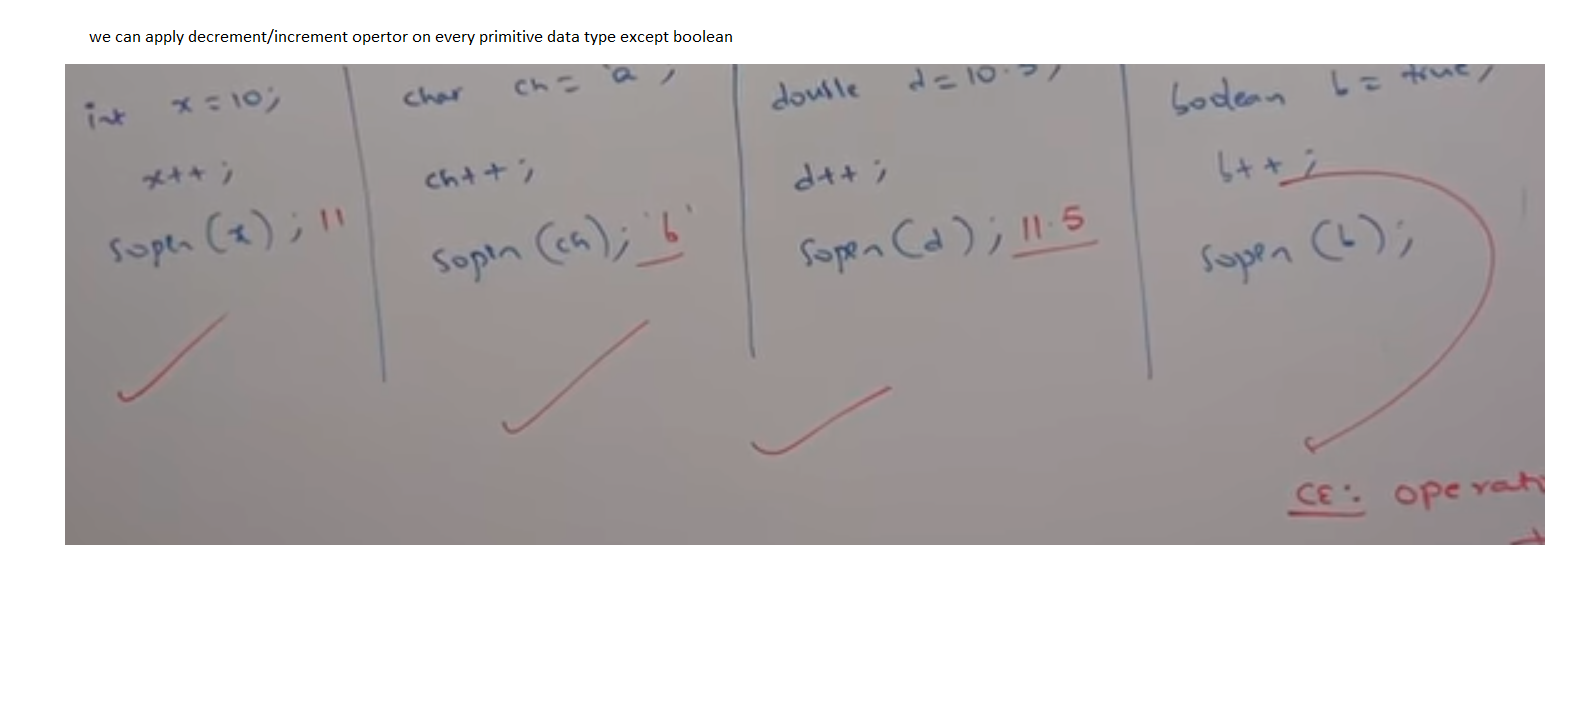 we can apply decrement/increment opertor on every primitive data type except boolean
int x = 10;
x++;
sopln (x); 11
char ch = 'a';
ch++;
sopln (ch); 'b'
double d = 10.5;
d++;
sopln (d); 11.5
boolean b = true;
b++;
sopln (b);
CE: operati